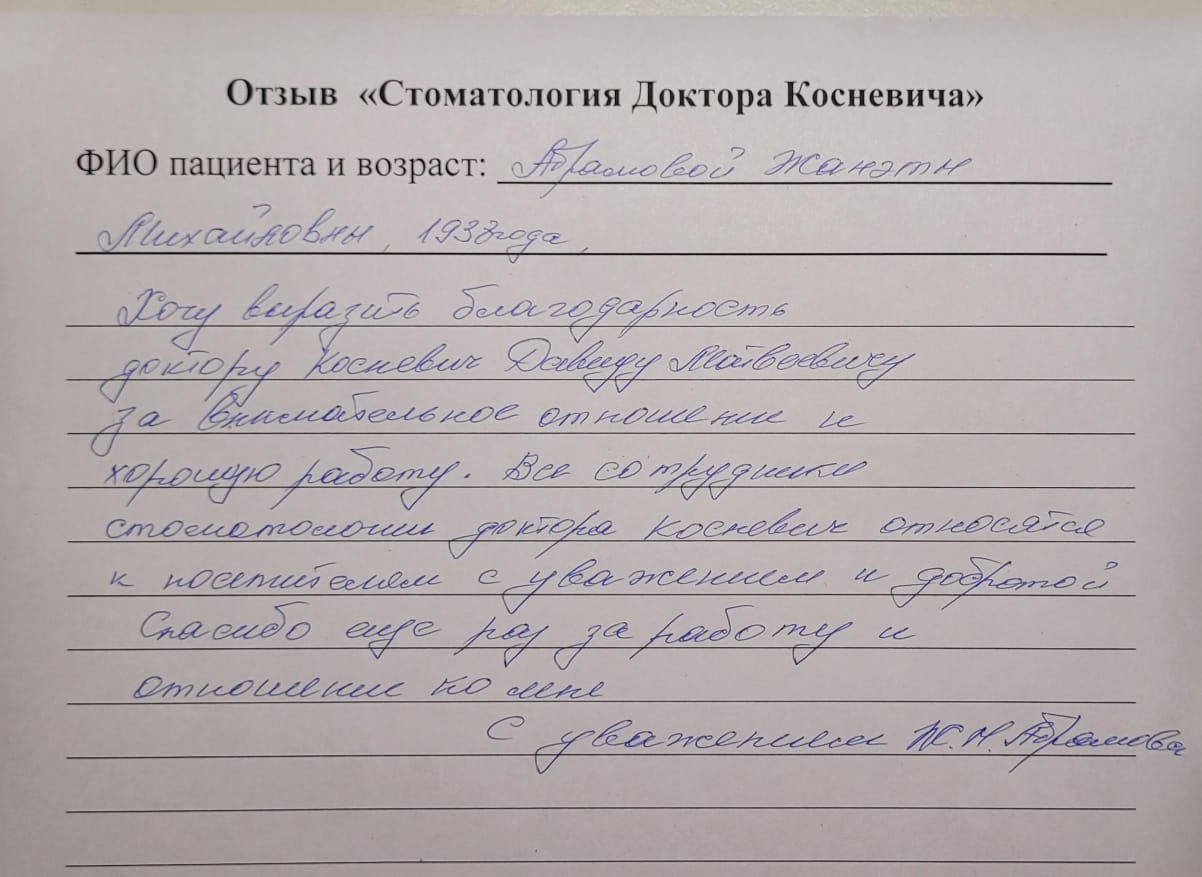 Отзыв «Стоматология Доктора Косневича»
ФИО пациента и возраст: Абрамовой Жанэтн
Михайловны, 1938года,
Хочу выразить благодарность
доктору Косневич Давиду Матвеевичу
за внимательное отношение и
хорошую работу. Все сотрудники
стоматологии доктора Косневич относятся
к посетителям с уважением и добротой
Спасибо еще раз за работу и
отношение ко мне
С уважением Ж.М. Абрамова